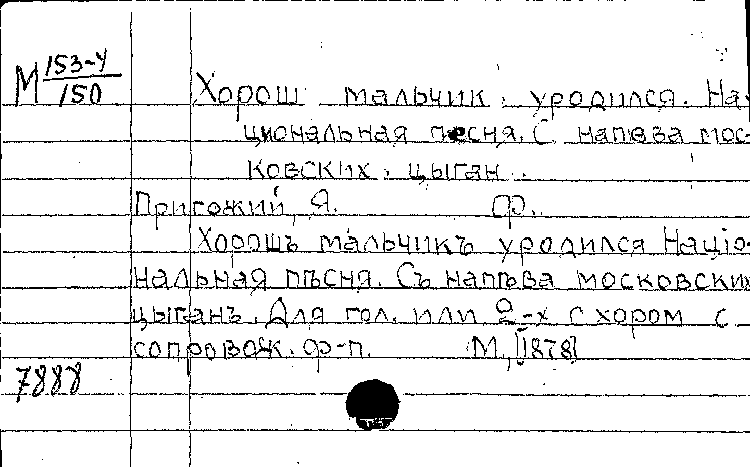 М 153-4/150
Хорош мальчик уродился. На-
циональная песня. С напева мос-
ковских цыган.
Пригожий, Я. ф.
Хорошъ мальчикъ уродился Націо-
нальная пѣсня. Съ напѣва московских
цыганъ. Для гол. или 2-х с хором с
сопровож. ф-п. М, [1878]
7888